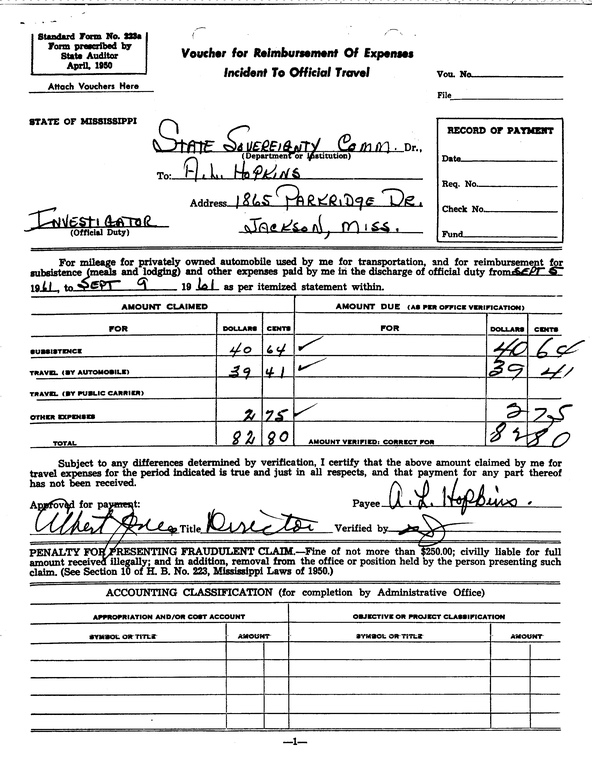 Standard Form No. 223a
Form prescribed by
State Auditor
April, 1950
Attach Vouchers Here
Voucher for Reimbursement Of Expenses
Incident To Official Travel
Vou. No.
File
STATE OF MISSISSIPPI
STATE SOVEREIGNTY COMM. Dr.,
(Department or Institution)
To: A.L. HOPKINS
Address 1865 PARKRIDGE DR.
JACKSON, MISS.
INVESTIGATOR
(Official Duty)
RECORD OF PAYMENT
Date
Req. No.
Check No.
Fund
For mileage for privately owned automobile used by me for transportation, and for reimbursement for
subsistence (meals and lodging) and other expenses paid by me in the discharge of official duty from SEPT 5
1961, to SEPT 9 1961 as per itemized statement within.
AMOUNT CLAIMED AMOUNT DUE (AS PER OFFICE VERIFICATION)
FOR DOLLARS CENTS FOR DOLLARS CENTS
SUBSISTENCE 40 64 ✓ 40 64
TRAVEL (BY AUTOMOBILE) 39 41 ✓ 39 41
TRAVEL (BY PUBLIC CARRIER)
OTHER EXPENSES 2 75 ✓ 2 75
TOTAL 82 80 AMOUNT VERIFIED: CORRECT FOR 82 80
Subject to any differences determined by verification, I certify that the above amount claimed by me for
travel expenses for the period indicated is true and just in all respects, and that payment for any part thereof
has not been received.
Approved for payment: Payee A. L. Hopkins.
Albert Jones Title Director Verified by
PENALTY FOR PRESENTING FRAUDULENT CLAIM.—Fine of not more than $250.00; civilly liable for full
amount received illegally; and in addition, removal from the office or position held by the person presenting such
claim. (See Section 10 of H. B. No. 223, Mississippi Laws of 1950.)
ACCOUNTING CLASSIFICATION (for completion by Administrative Office)
APPROPRIATION AND/OR COST ACCOUNT OBJECTIVE OR PROJECT CLASSIFICATION
SYMBOL OR TITLE AMOUNT SYMBOL OR TITLE AMOUNT
—1—